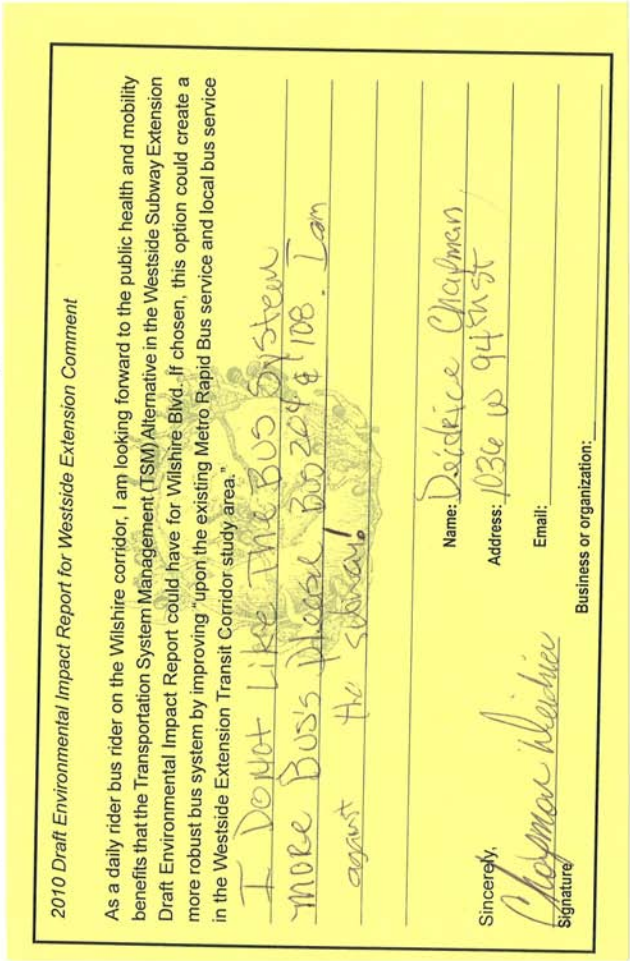 2010 Draft Environmental Impact Report for Westside Extension Comment
As a daily rider bus rider on the Wilshire corridor, I am looking forward to the public health and mobility
benefits that the Transportation System Management (TSM) Alternative in the Westside Subway Extension
Draft Environmental Impact Report could have for Wilshire Blvd. If chosen, this option could create a
more robust bus system by improving "upon the existing Metro Rapid Bus service and local bus service
in the Westside Extension Transit Corridor study area."
I DoNot Like The BUS System
MORE BUS's please Bus 204 & 108. I am
against the subway!
Name: Deidrice Chapman
Address: 1036 W 94th St
Email:
Sincerely,
Chapman Deidrice
Signature
Business or organization: